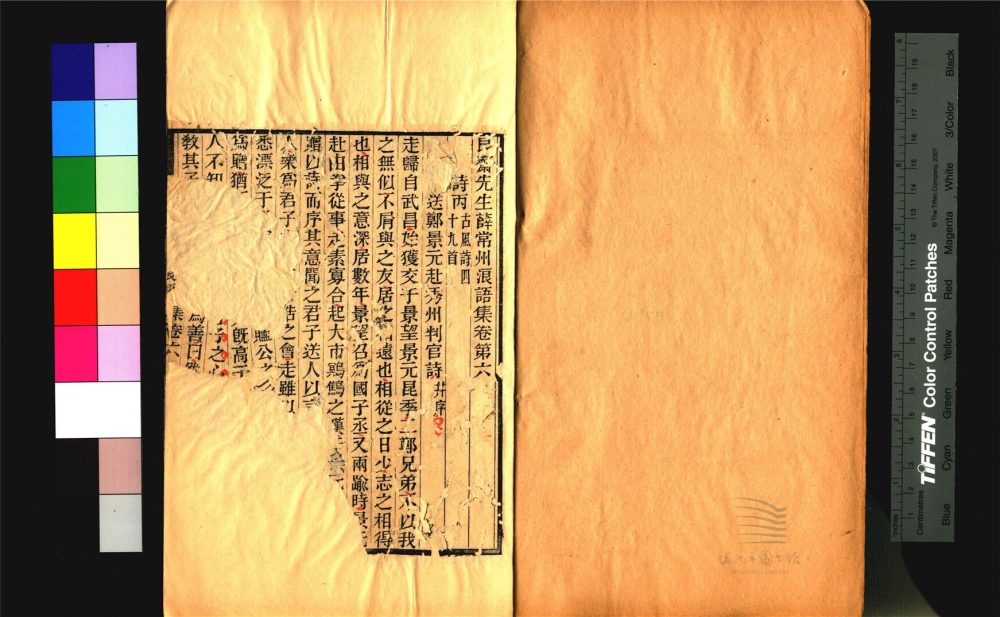 艮齋先生薛常州浪語集卷第六
詩丙 古風詩四
十九首
送鄭景元赴秀州判官詩 并序
走歸自武昌始獲交于景望景元昆季二鄭兄弟不以我
之無似不屑與之友居之遠也相從之日少志之相得
也相與之意深居數年景望召爲國子丞又兩踰時景
赴由拳從事走素寡合起大市鴂鴃之
贈以詩而序其意聞之君子送人以言
人樂爲君子 之會走雖
悉漂泛于 臨公之
爲贈猶 既高
人不知 子之
教其子 爲善日
集卷六
Inches
Centimetres
TIFFEN Color Control Patches
© The Tiffen Company, 2007
Blue Cyan Green Yellow Red Magenta White 3/Color Black
溫州市圖書館
WENZHOU LIBRARY